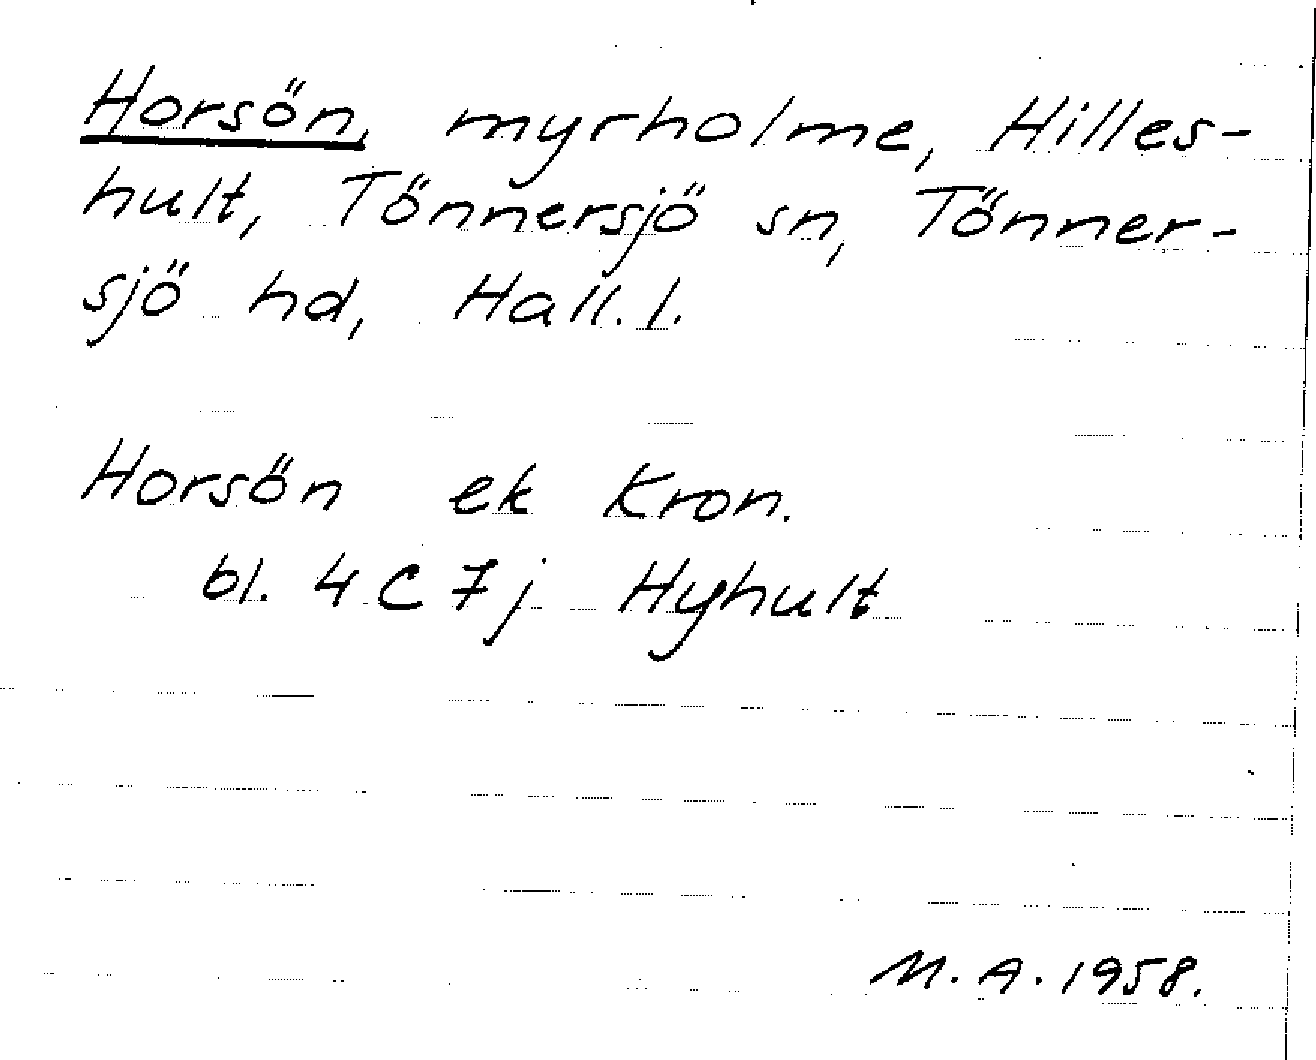 Horsön, myrholme, Hilles-
hult, Tönnersjö sn, Tönner-
sjö hd, Hall. l.
Horsön ek Kron.
bl. 4 C 7 j Hyhult
M. A. 1958.